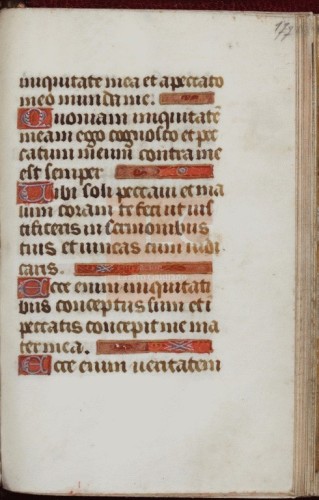 177
iniquitate mea et a peccato
meo munda me.
Quoniam iniquitate
meam ego cognosco et pec
catum meum contra me
est semper
Tibi soli peccavi et ma
lum coram te feci ut ius
tificeris in sermonibus
tuis et vincas cum iudi
caris.
Ecce enim iniquitati
bus conceptus sum et i
peccatis concepit me ma
ter mea.
Ecce enim veritatem